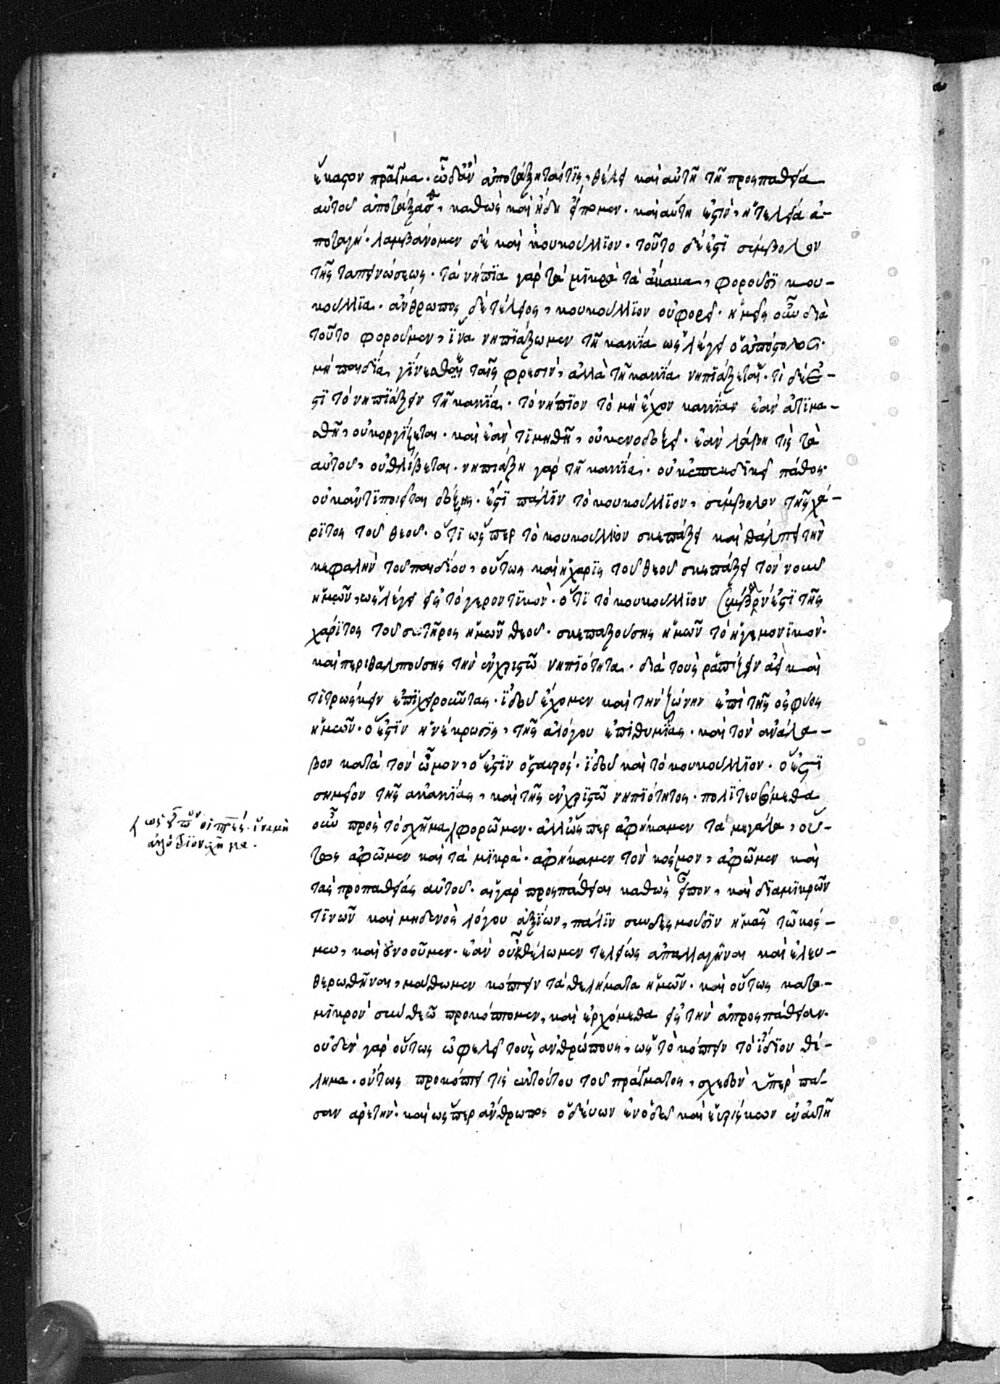 ἕκαστον πρᾶγμα. ὧδ' ἂν ἀποτάξηταί τις, θέλει καὶ αὐτῇ τῇ προσπαθείᾳ
αὐτοῦ ἀποτάξασθαι, καθὼς καὶ ἤδη εἴπομεν. καὶ αὕτη ἐστὶν, ἡ τελεία ἀ-
ποταγή. λαμβάνομεν δὲ καὶ κουκούλλιον. τοῦτο δέ ἐστι σύμβολον
τῆς ταπεινώσεως. τὰ νήπια γὰρ τὰ μικρὰ τὰ ἄκακα, φοροῦσι κου-
κούλλια. ἄνθρωπος δὲ τέλειος, κουκούλλιον οὐ φορεῖ. ἡμεῖς οὖν διὰ
τοῦτο φοροῦμεν, ἵνα νηπιάζωμεν τῇ κακίᾳ ὡς λέγει ὁ ἀπόστολος.
μὴ παιδία γίνεσθαι ταῖς φρεσὶν, ἀλλὰ τῇ κακίᾳ νηπιάζεται. τί δέ ἐ-
στι τὸ νηπιάζειν τῇ κακίᾳ. τὸ νήπιον τὸ μὴ ἔχον κακίαν ἐὰν ἀτιμα-
σθῇ, οὐκ ὀργίζεται. καὶ ἐὰν τιμηθῇ, οὐ κενοδοξεῖ. ἐὰν λάβῃ τις τὰ
αὐτοῦ, οὐ θλίβεται. νηπιάζῃ γὰρ τῇ κακίᾳ. οὐκ ἐπεκδικεῖ πάθος.
οὐκ ἀντιποιεῖται δόξης. ἐστὶ πάλιν τὸ κουκούλλιον, σύμβολον τῆς χά-
ριτος τοῦ θεοῦ. ὅτι ὥσπερ τὸ κουκούλλιον σκεπάζει καὶ θάλπει τὴν
κεφαλὴν τοῦ παιδίου, οὕτως καὶ ἡ χάρις τοῦ θεοῦ σκεπάζει τὸν νοῦν
ἡμῶν, ὡς λέγει εἰς τὸ γεροντικόν. ὅτι τὸ κουκούλλιον σύμβολόν ἐστι τῆς
χάριτος τοῦ σωτῆρος ἡμῶν θεοῦ. σκεπαζούσης ἡμῶν τὸ ἡγεμονικόν.
καὶ περιθαλπούσης τὴν ἐν χριστῷ νηπιότητα. διὰ τοὺς ῥαπίζειν ἀεὶ καὶ
τιτρώσκειν ἐπιχειροῦντας. ἰδοὺ ἔχομεν καὶ τὴν ζώνην ἐπὶ τῆς ὀσφύος
ἡμῶν. ὅ ἐστιν ἡ νέκρωσις, τῆς ἀλόγου ἐπιθυμίας. καὶ τὸν ἀνάλα-
βον κατὰ τὸν ὦμον, ὅ ἐστιν ὁ σταυρός. ἰδοὺ καὶ τὸ κουκούλλιον. ὅ ἐστι
σημεῖον τῆς ἀκακίας, καὶ τῆς ἐν χριστῷ νηπιότητος. πολιτευσώμεθα
οὖν πρὸς τὸ σχῆμα / φορῶμεν. ἀλλ' ὥσπερ ἀφήκαμεν τὰ μεγάλα, οὕ-
τως ἀφῶμεν καὶ τὰ μικρά. ἀφήκαμεν τὸν κόσμον, ἀφῶμεν καὶ
τὰς προπαθείας αὐτοῦ. αἱ γὰρ προσπάθειαι καθὼς εἶπον, καὶ διὰ μικρῶν
τινῶν καὶ μηδενὸς λόγου ἀξίων, πάλιν συνδεσμοῦσιν ἡμᾶς τῷ κόσ-
μῳ, καὶ ἀγνοοῦμεν. ἐὰν οὖν θέλωμεν τελείως ἀπαλλαγῆναι καὶ ἐλευ-
θερωθῆναι, μάθωμεν κόπτειν τὰ θελήματα ἡμῶν. καὶ οὕτως κατὰ
μικρὸν σὺν θεῷ προκόπτομεν, καὶ ἐρχόμεθα εἰς τὴν ἀπροσπάθειαν.
οὐδὲν γὰρ οὕτως ὠφελεῖ τοὺς ἀνθρώπους, ὡς τὸ κόπτειν τὸ ἴδιον θέ-
λημα. οὕτως προκόπτει τις ἐκ τούτου τοῦ πράγματος, σχεδὸν ὑπὲρ πᾶ-
σαν ἀρετήν. καὶ ὥσπερ ἄνθρωπος ὁδεύων ἐν ὁδῷ καὶ εὑρίσκων ἐν αὐτῇ
/ ὡς εἶπον οἱ πατέρες. ἵνα μὴ
ἀλλότριον σχῆμα.